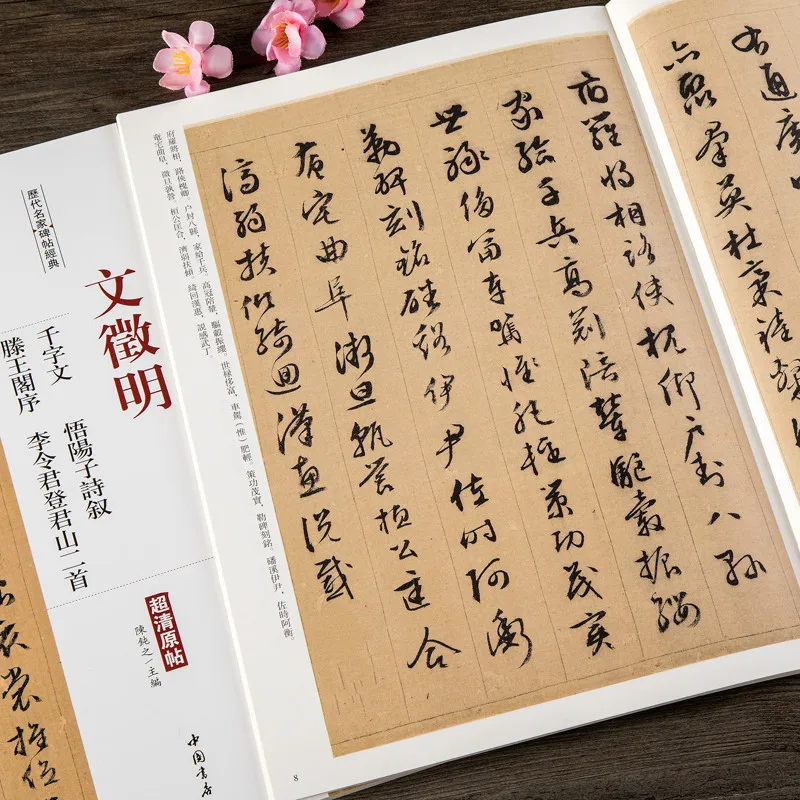 歷代名家碑帖經典
文徵明
千字文　悟陽子詩叙
滕王閣序　李令君登君山二首
超清原帖
陳鈍之/主編
中國書店
右通廣
亦聚群英杜稾鍾隸
府羅將相路俠槐卿户封八縣
家給千兵高冠陪輦驅轂振纓
世祿侈富車駕惟肥輕策功茂實
勒碑刻銘磻溪伊尹佐時阿衡
奄宅曲阜微旦孰營桓公匡合
濟弱扶傾綺迴漢惠説感
府羅將相，路俠槐卿。户封八縣，家給千兵。高冠陪輦，驅轂振纓。世禄侈富，車駕（惟）肥輕。策功茂實，勒碑刻銘。磻溪伊尹，佐時阿衡。
奄宅曲阜，微旦孰營。桓公匡合，濟弱扶傾。綺回漢惠，説感武丁。
8